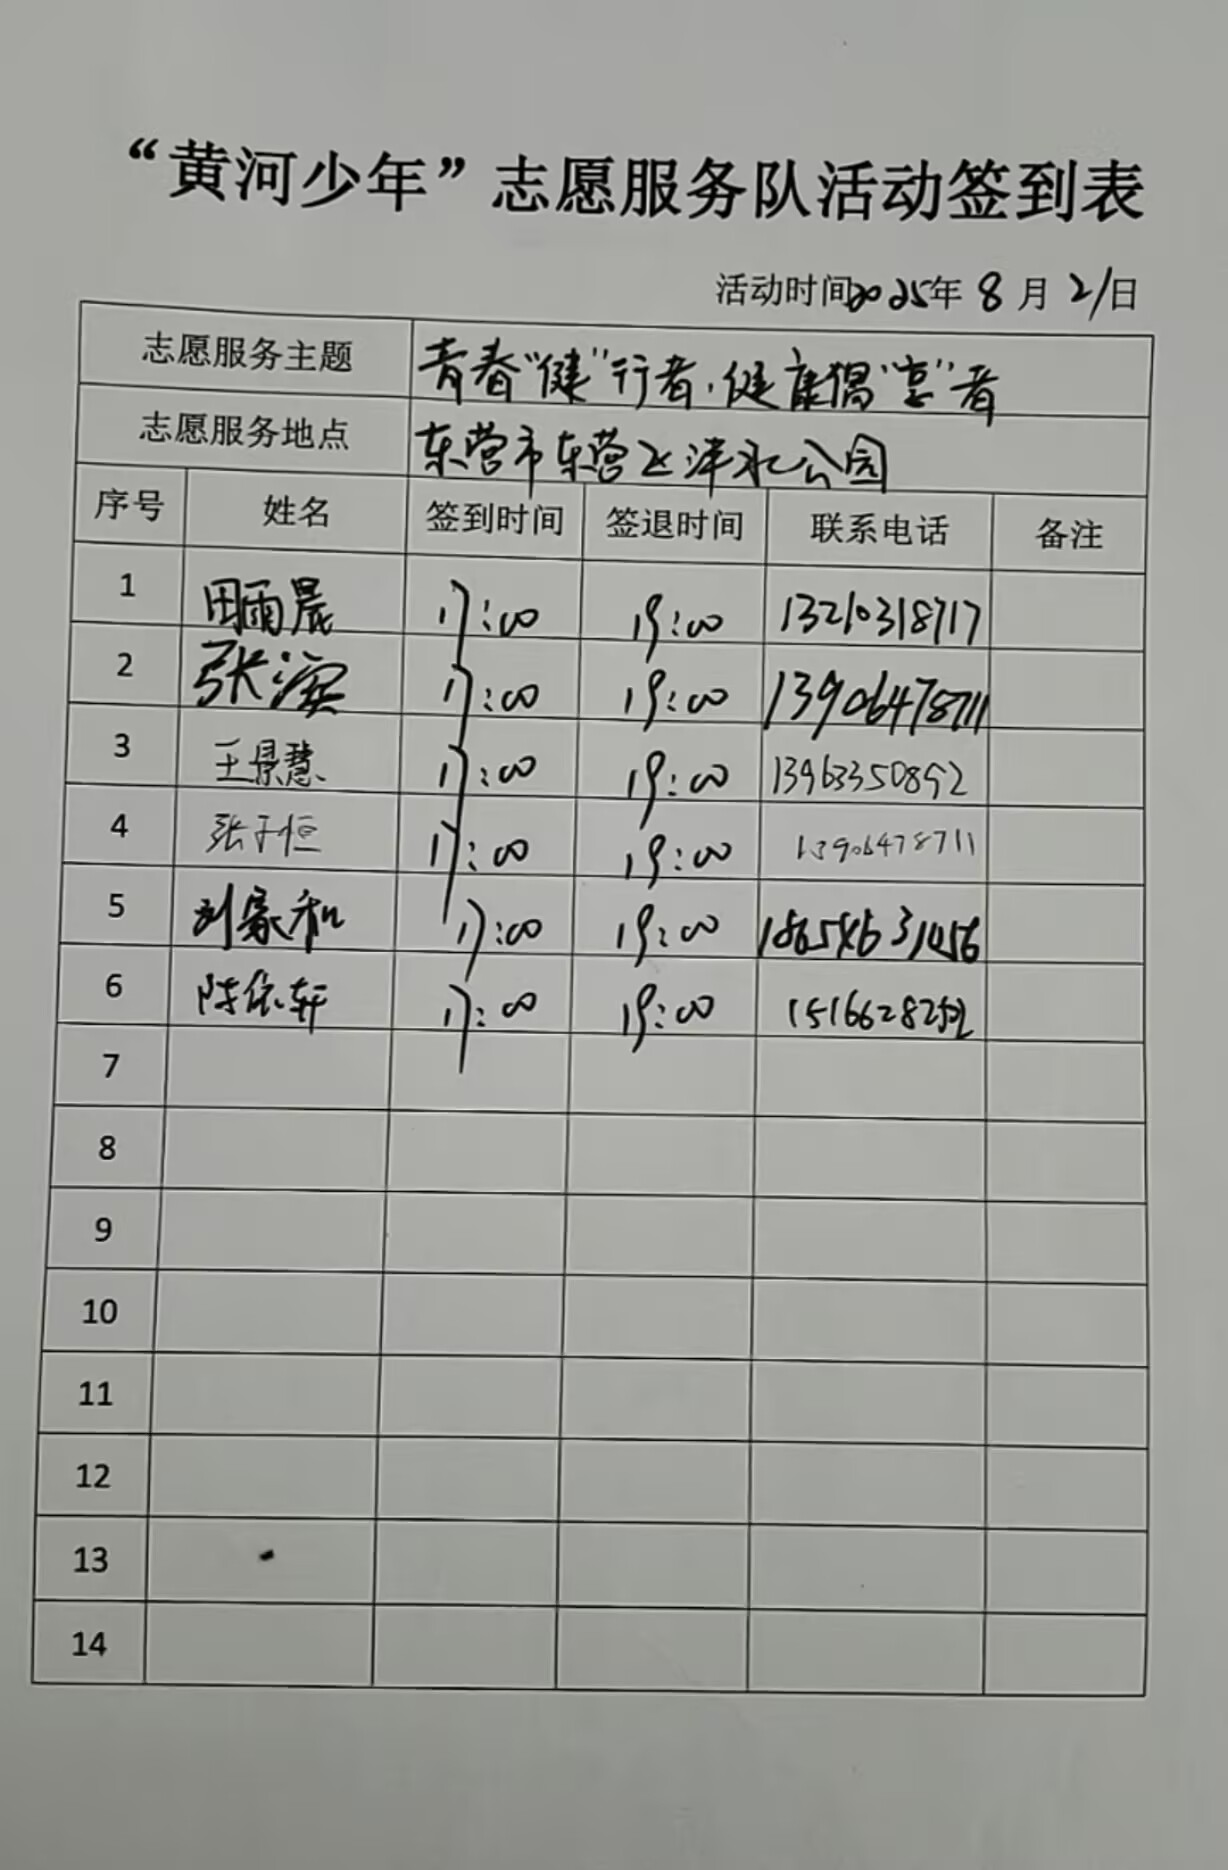 “黄河少年”志愿服务队活动签到表
活动时间2025年8月21日
志愿服务主题 青春“健”行者,健康倡“言”者
志愿服务地点 东营市东营区洋水公园
序号 姓名 签到时间 签退时间 联系电话 备注
1 田雨晨 17:00 19:00 13210318717
2 张滨 17:00 19:00 13906478711
3 王景慧 17:00 19:00 13963350892
4 张子恒 17:00 19:00 13906478711
5 刘家和 17:00 19:00
6 陈依轩 17:00 19:00
7
8
9
10
11
12
13
14